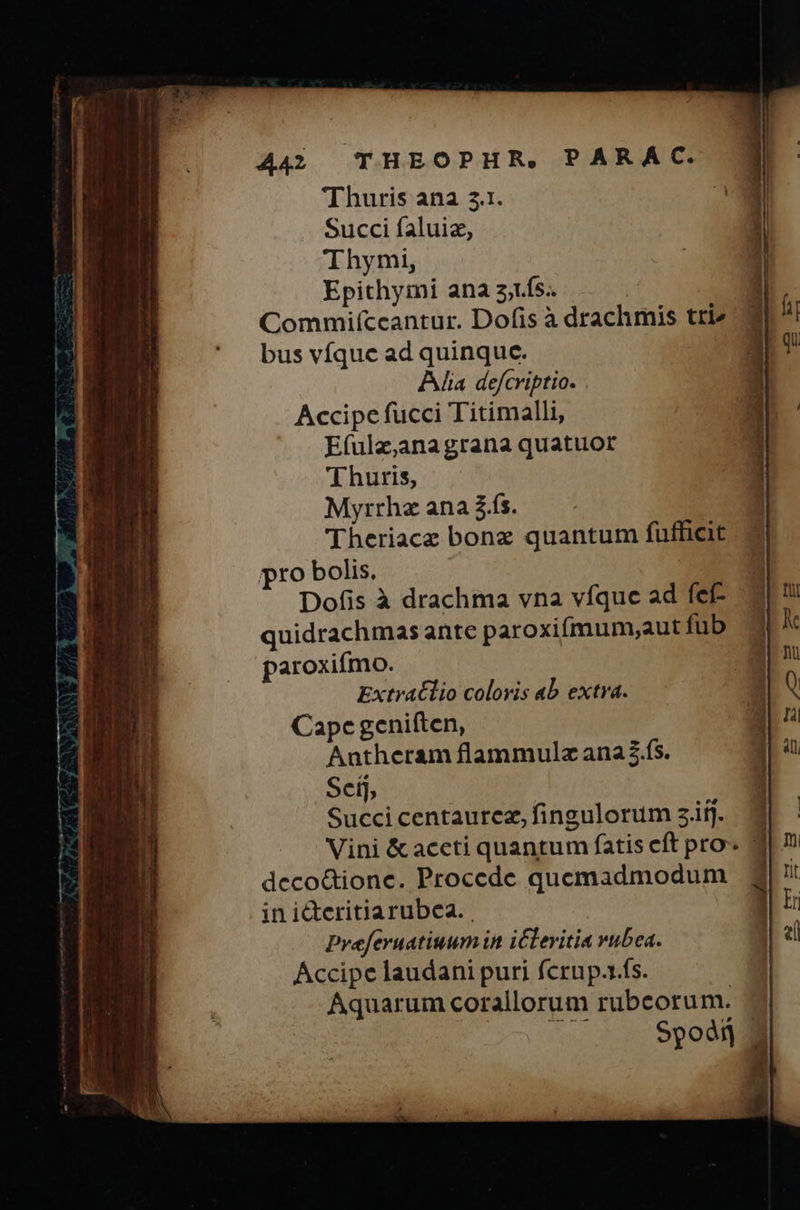 442 THEOPHR. PARAC.
Thuris ana ʒ.1.
Succi ſaluiæ,
Thymi,
Epithymi ana ʒ.1.ſs.
Commiſceantur. Doſis à drachmis tri-
bus vſque ad quinque.
Alia deſcriptio.
Accipe ſucci Titimalli,
Eſulæ, ana grana quatuor
Thuris,
Myrrhæ ana ℥.ſs.
Theriacæ bonæ quantum ſufficit
pro bolis.
Doſis à drachma vna vſque ad ſeſ-
quidrachmas ante paroxiſmum, aut ſub
paroxiſmo.
Extractio coloris ab extra.
Cape geniſten,
Antheram flammulæ ana ℥.ſs.
Seij,
Succi centaureæ, ſingulorum ʒ.iij.
Vini & aceti quantum ſatis eſt pro
decoctione. Procede quemadmodum
in icteritia rubea.
Præſeruatiuum in icteritia rubea.
Accipe laudani puri ſcrup.1.ſs.
Aquarum corallorum rubeorum.
Spodij